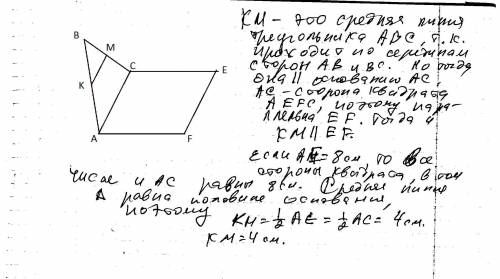 B
M
C
E
K
A
F
КМ – это средняя линия
треугольника АВС, т.к.
проходит по серединам
сторон АВ и ВС. Но тогда
она || основанию АС,
АС – сторона квадрата
AEFC, поэтому пара-
ллельна EF. Тогда и
КМ || EF.
Если AE=8см, то все
стороны квадрата, в том
числе и АС равны 8см. Средняя линия
∆ равна половине основания,
поэтому КМ = ½ AE = ½ AC = 4 см.
КМ = 4 см.